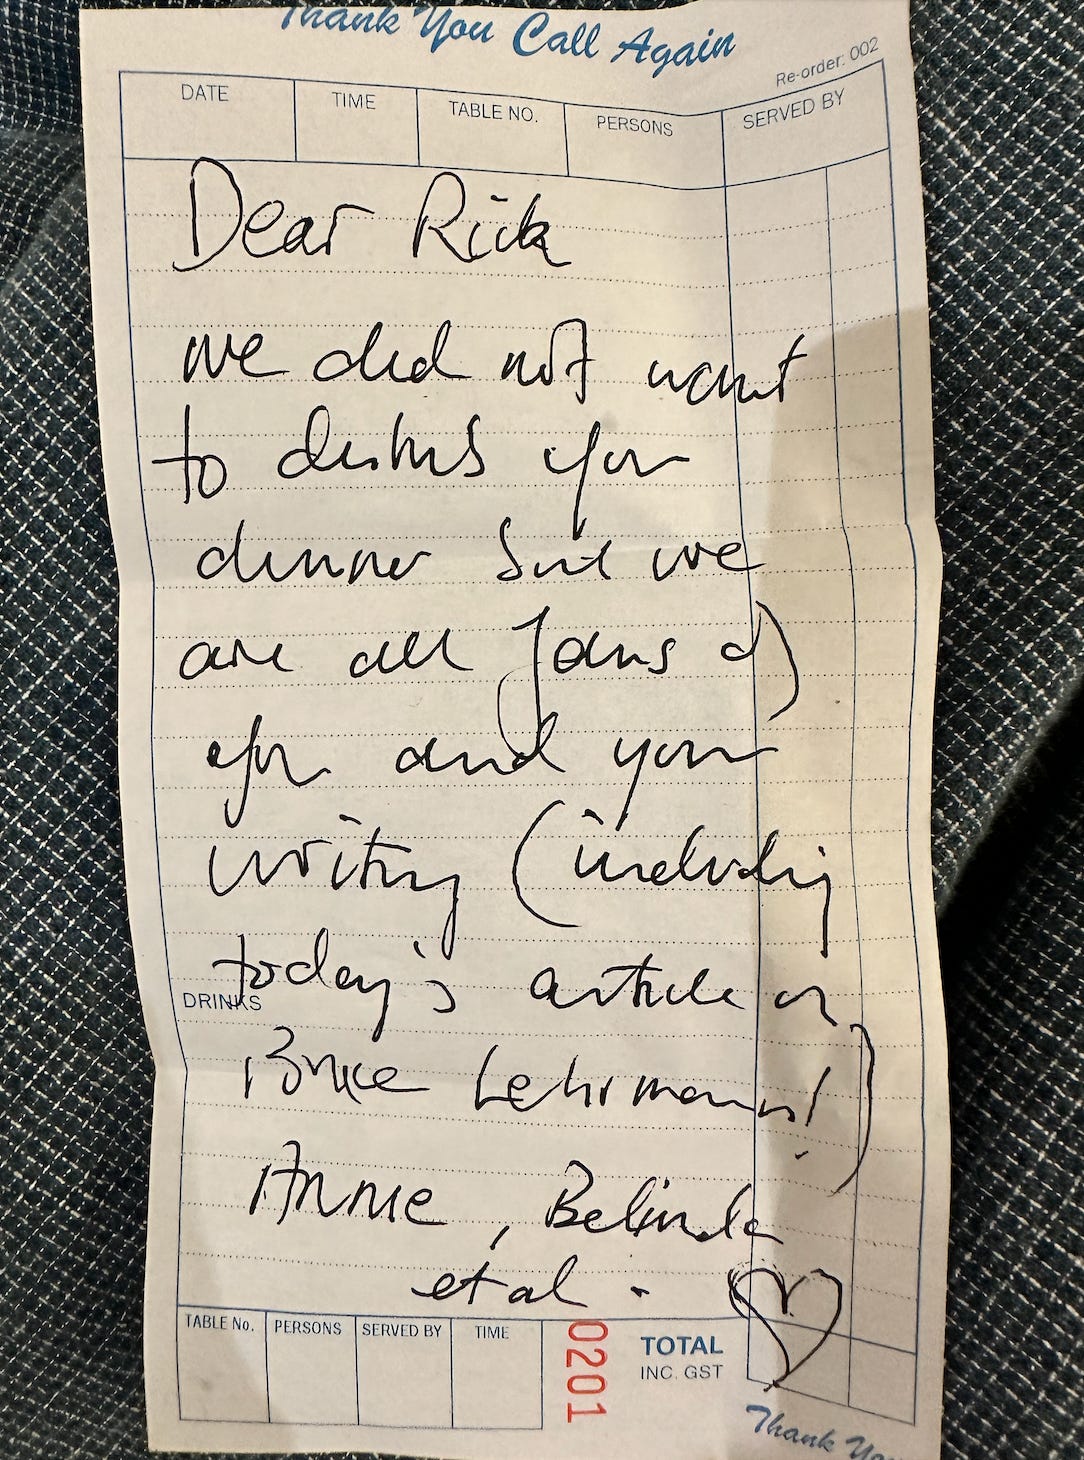 Thank You Call Again
Re-order: 002
DATE TIME TABLE NO. PERSONS SERVED BY
Dear Rick
we did not want
to disturb your
dinner but we
are all fans of
you and your
writing (including
today's article on
DRINKS
Bruce Lehrmann!)
Annie, Belinda
et al.
TABLE No. PERSONS SERVED BY TIME 0201 TOTAL
INC. GST
Thank You